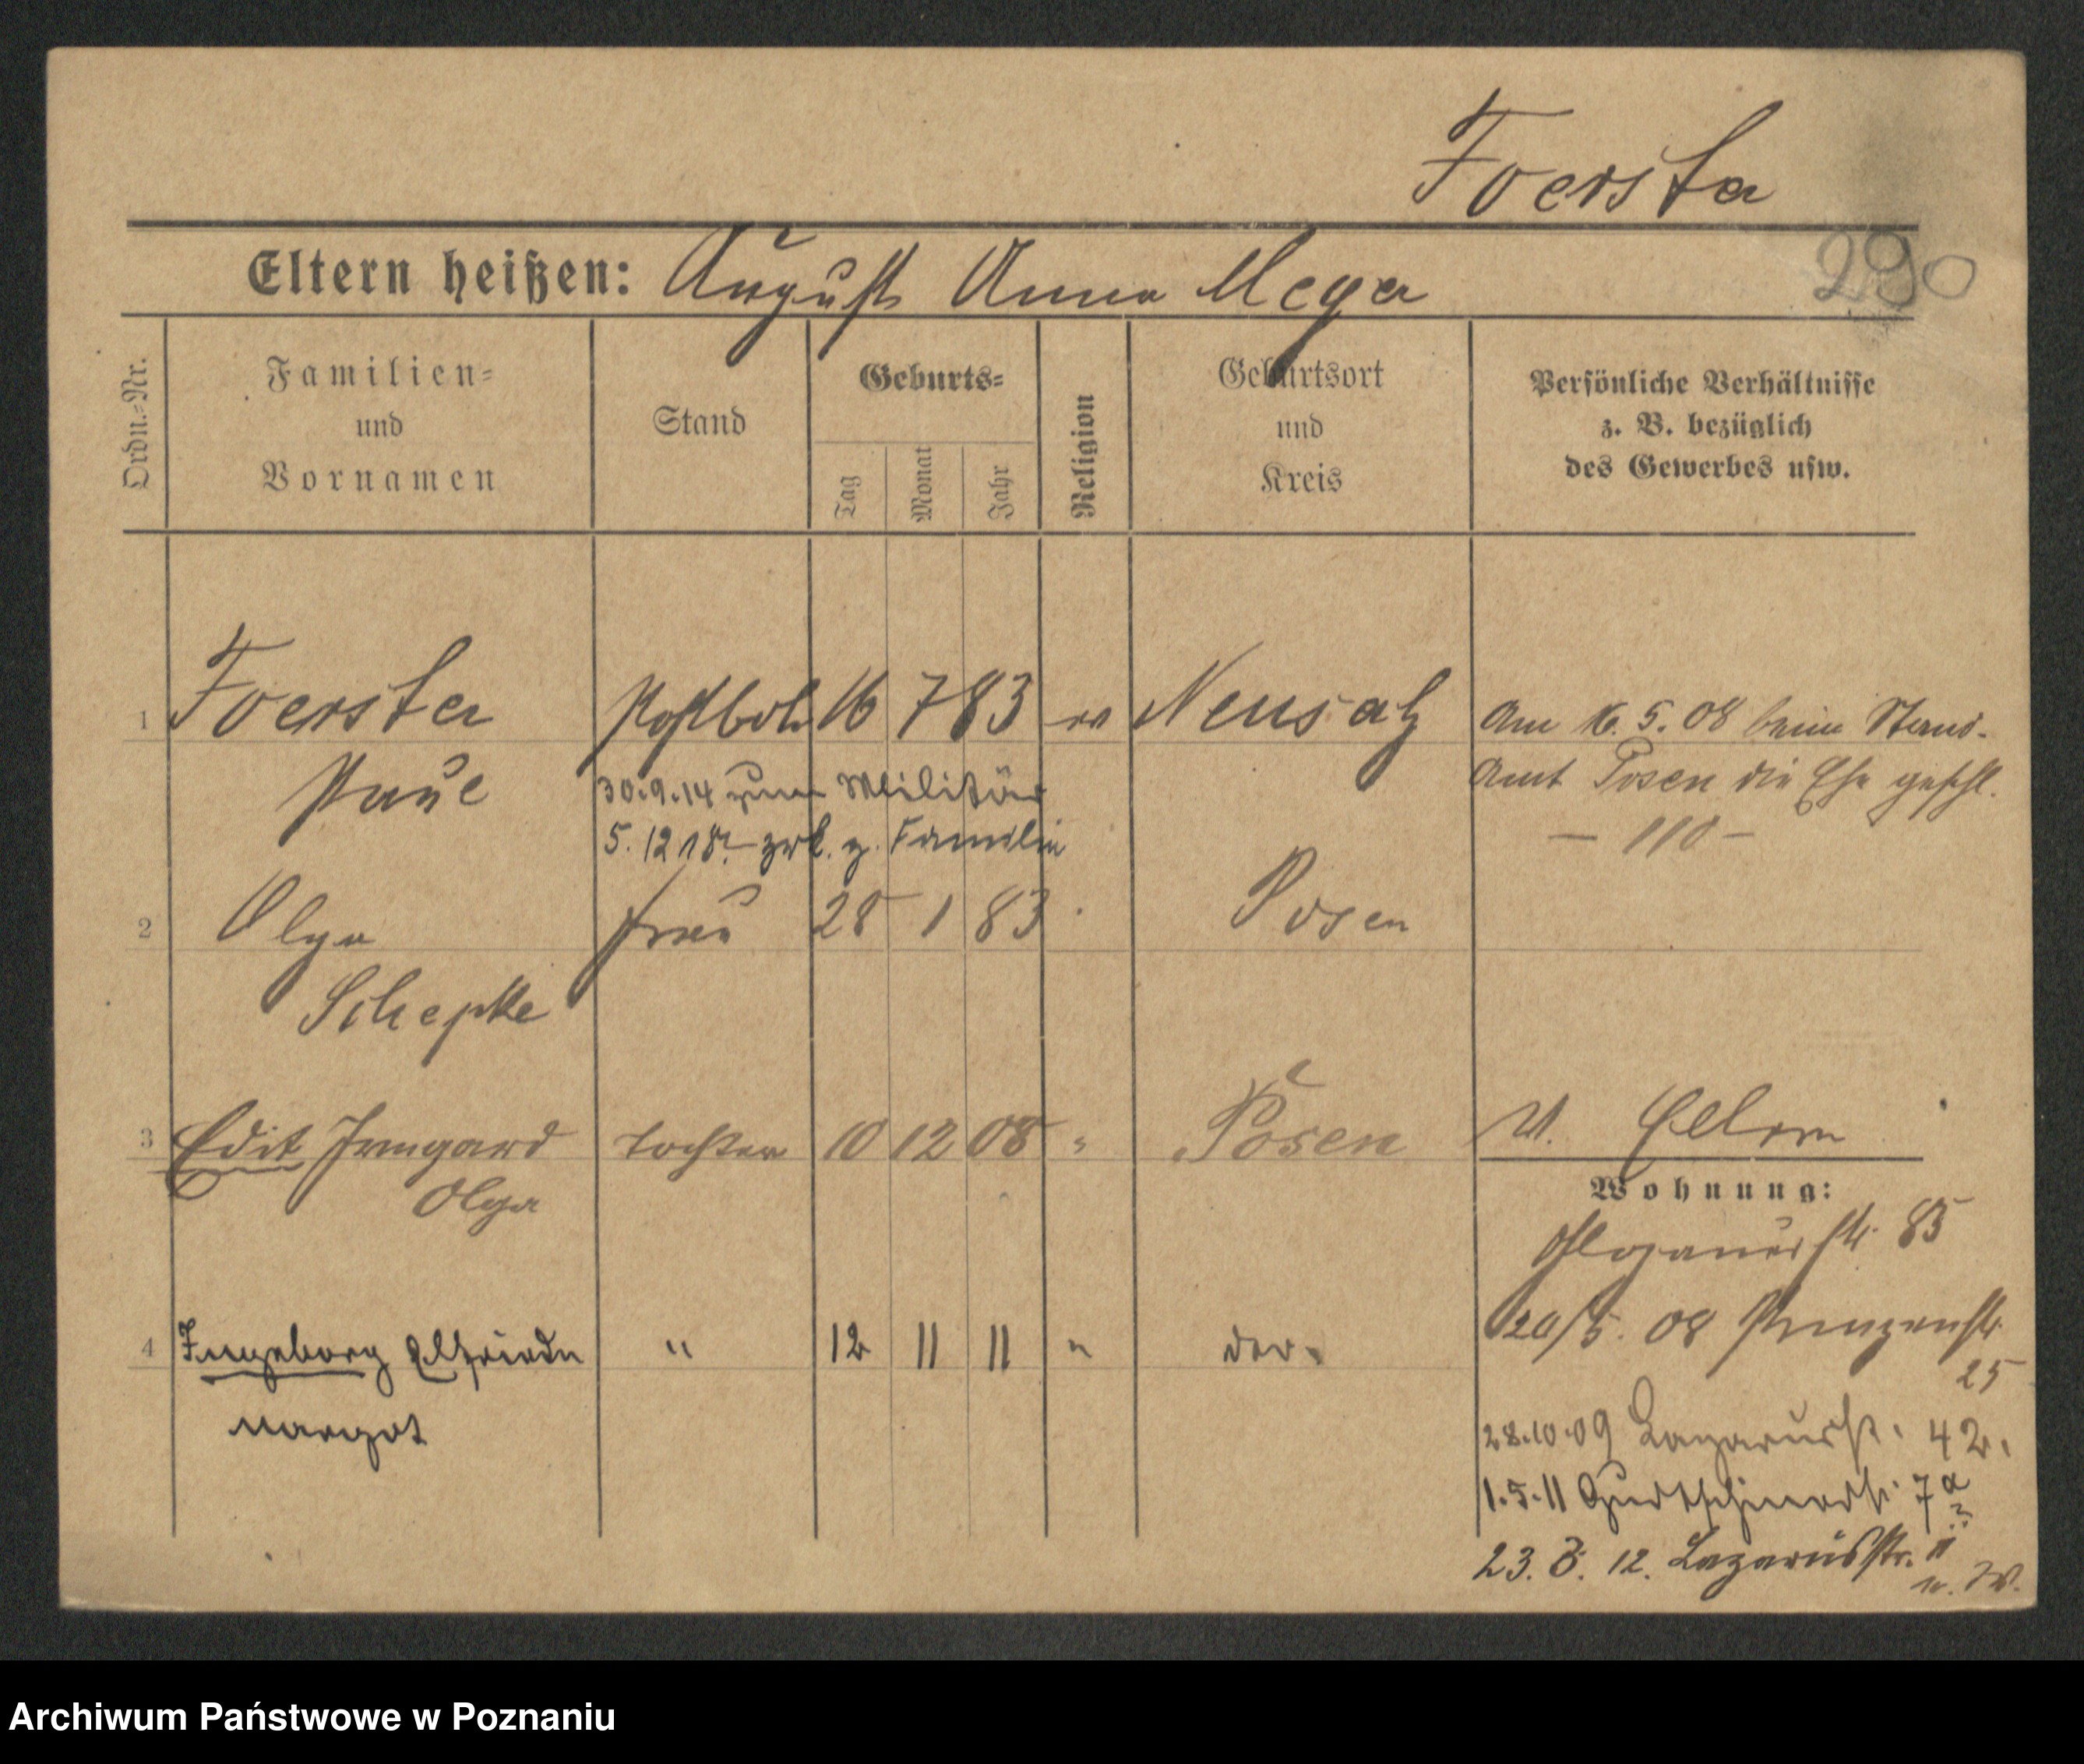 Foerster
290
Eltern heißen: August Anna Meyer
Ordn.-Nr.
Familien-
und
Vornamen
Stand
Geburts-
Tag
Monat
Jahr
Religion
Geburtsort
und
Kreis
Persönliche Verhältnisse
z. B. bezüglich
des Gewerbes usw.
1 Foerster Postbote 16 7 83 ev Neusalz Am 16. 5. 08 beim Stand-
Paul 30.9.14 zum Militär Amt Posen die Ehe geschl.
5. 12 18 zrk. z. Familie
— 110 —
2 Olga Frau 28 1 83 Posen
Schepke
3 Edit Irmgard Tochter 10 12 08 " Posen Eltern
Olga
Wohnung:
Glogauerstr. 85
4 Ingeborg Elfriede " 12 11 11 " do.
20/5. 08 Prinzenstr.
25
Margot
28.10.09 Lazarusstr. 42.
1.5.11 Gurtschinerstr. 7a
23. 3. 12. Lazarusstr. 11
n. W.
Archiwum Państwowe w Poznaniu